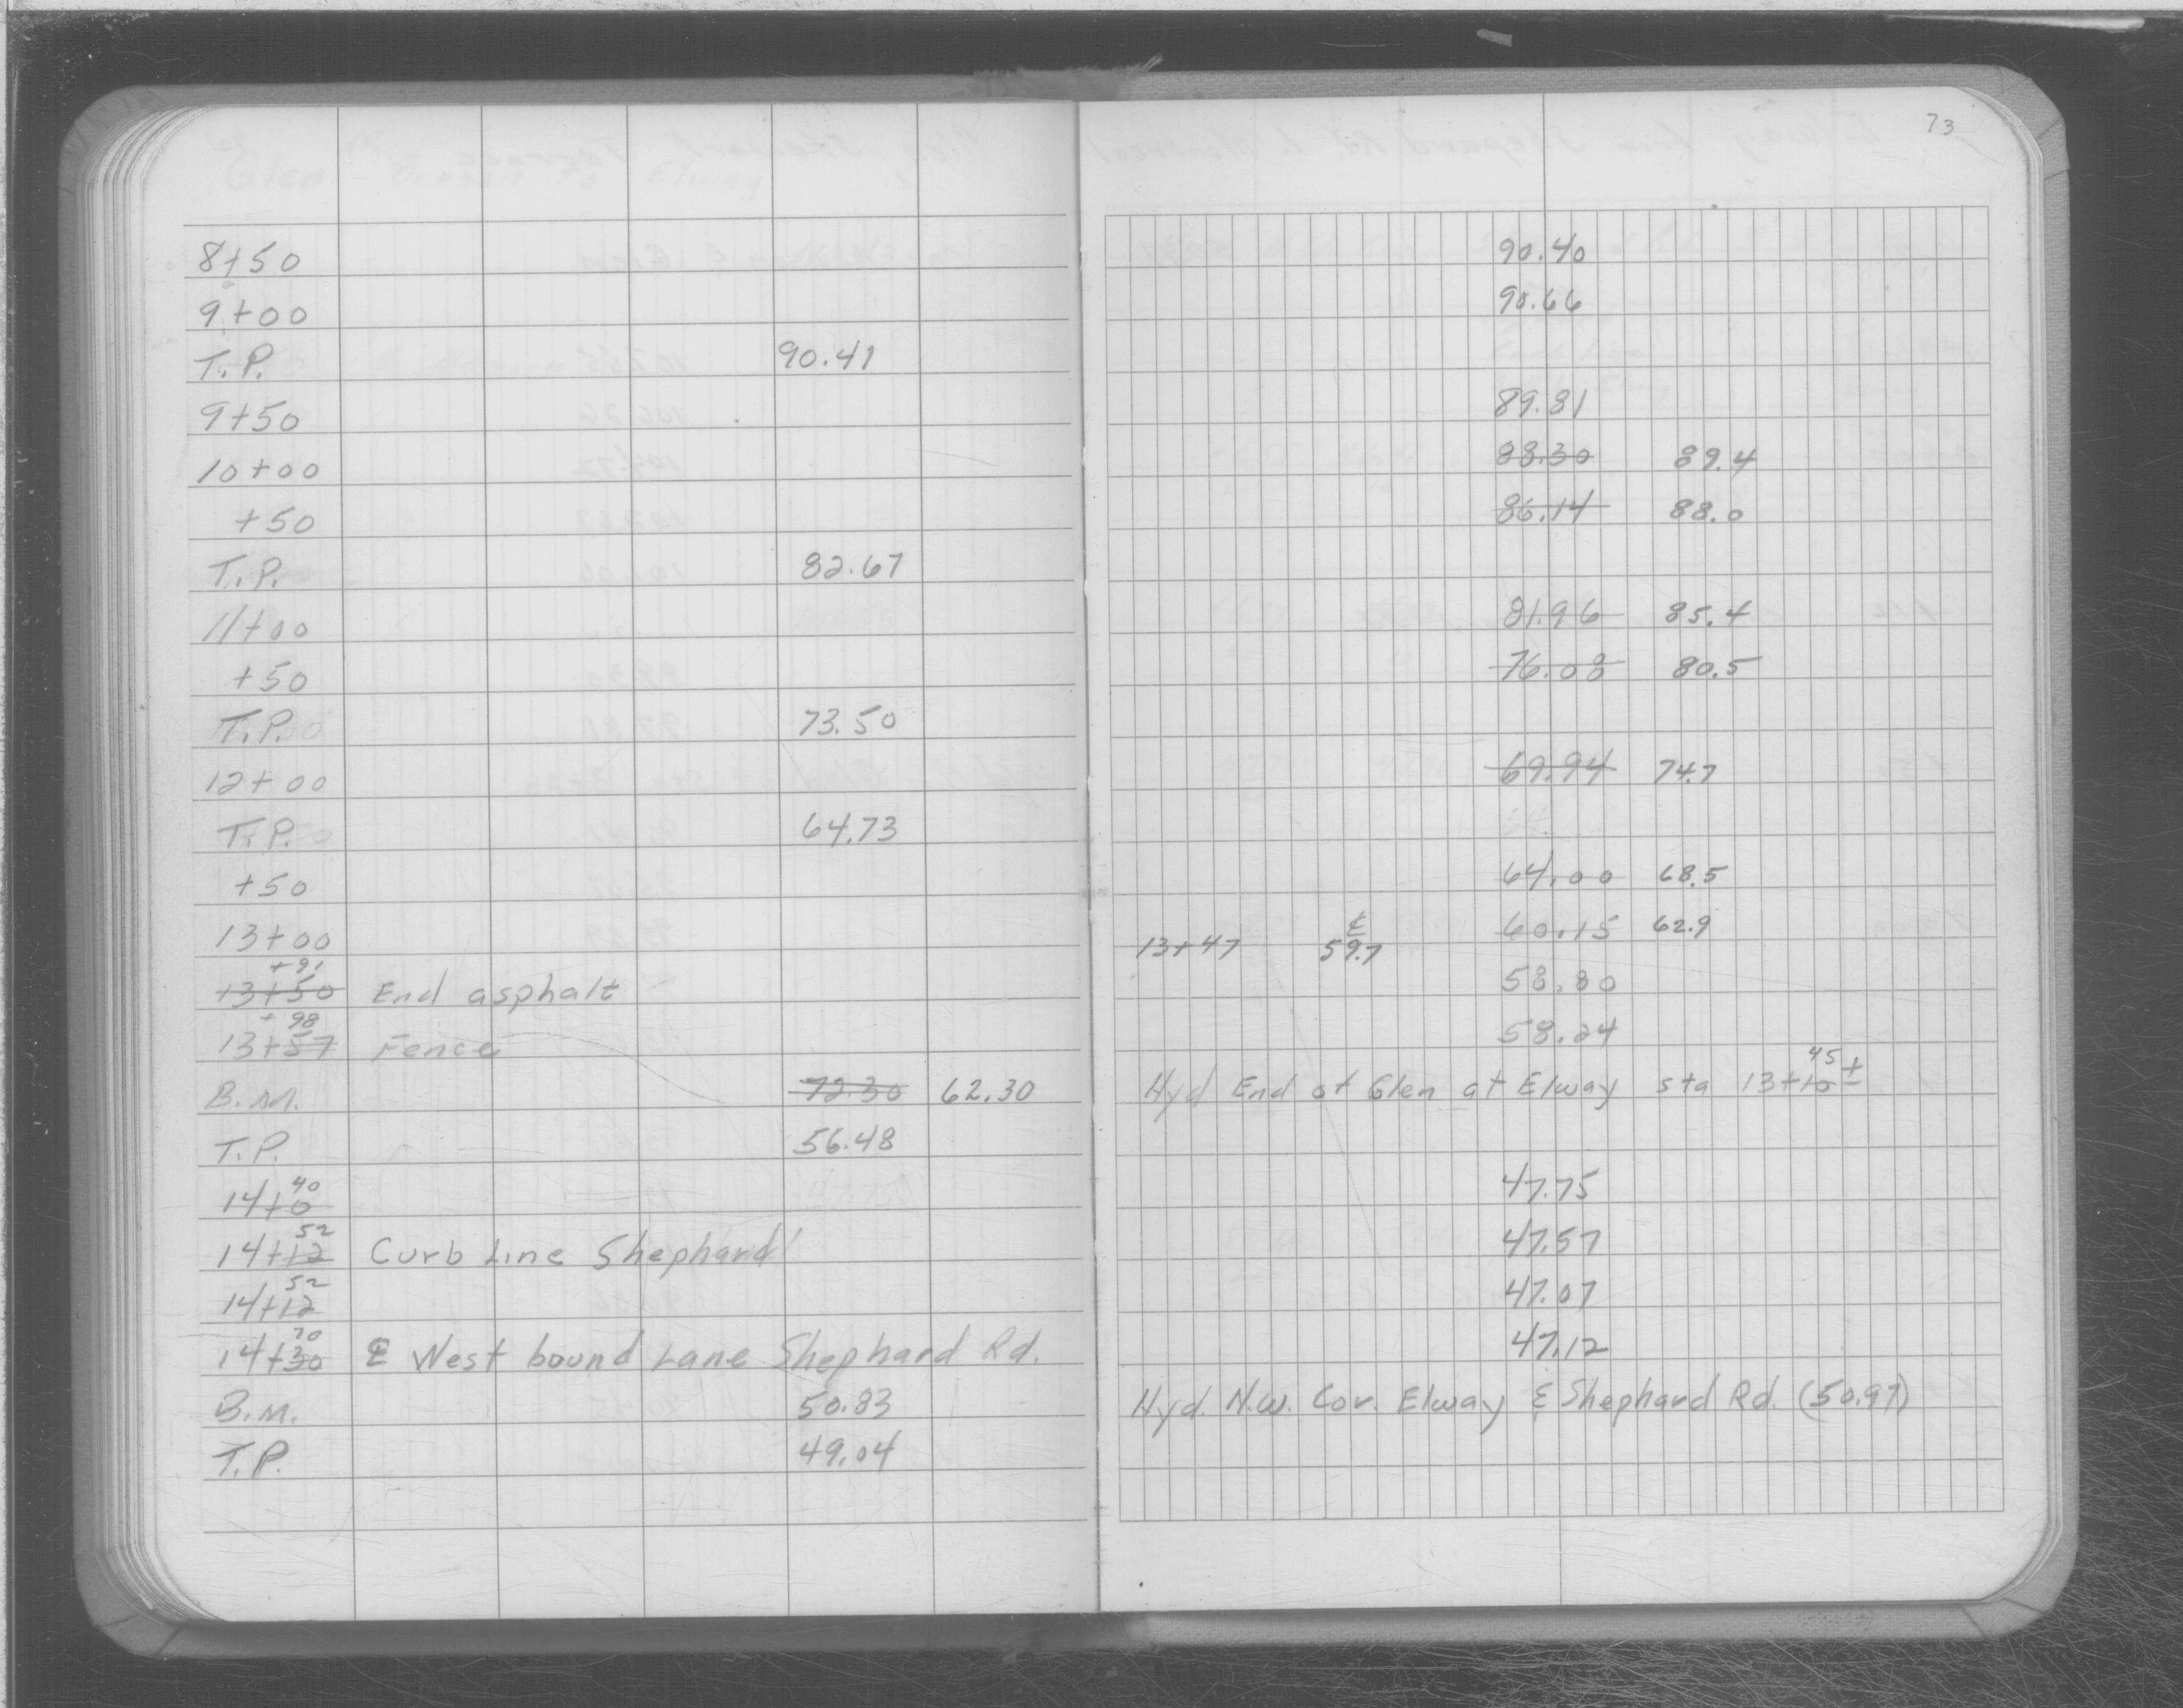 73
8+50 90.40
9+00 90.66
T.P. 90.41
9+50 89.81
10+00 88.30 89.4
+50 86.14 88.0
T.P. 82.67
11+00 81.96 85.4
+50 76.08 80.5
T.P. 73.50
12+00 69.94 74.7
T.P. 64.73
+50 64.00 68.5
13+00 60.15 62.9
13+47 ℄ 59.7
+91
13+50 End asphalt 58.80
+98
13+57 Fence 58.24
45
B.M. 72.30 62.30 Hyd End of Glen at Elway sta 13+10±
T.P. 56.48
40
14+0 47.75
52
14+12 Curb Line Shephard 47.57
52
14+12 47.07
70
14+30 ℄ West bound Lane Shephard Rd. 47.12
B.M. 50.83 Hyd. N.W. Cor. Elway & Shephard Rd. (50.97)
T.P. 49.04